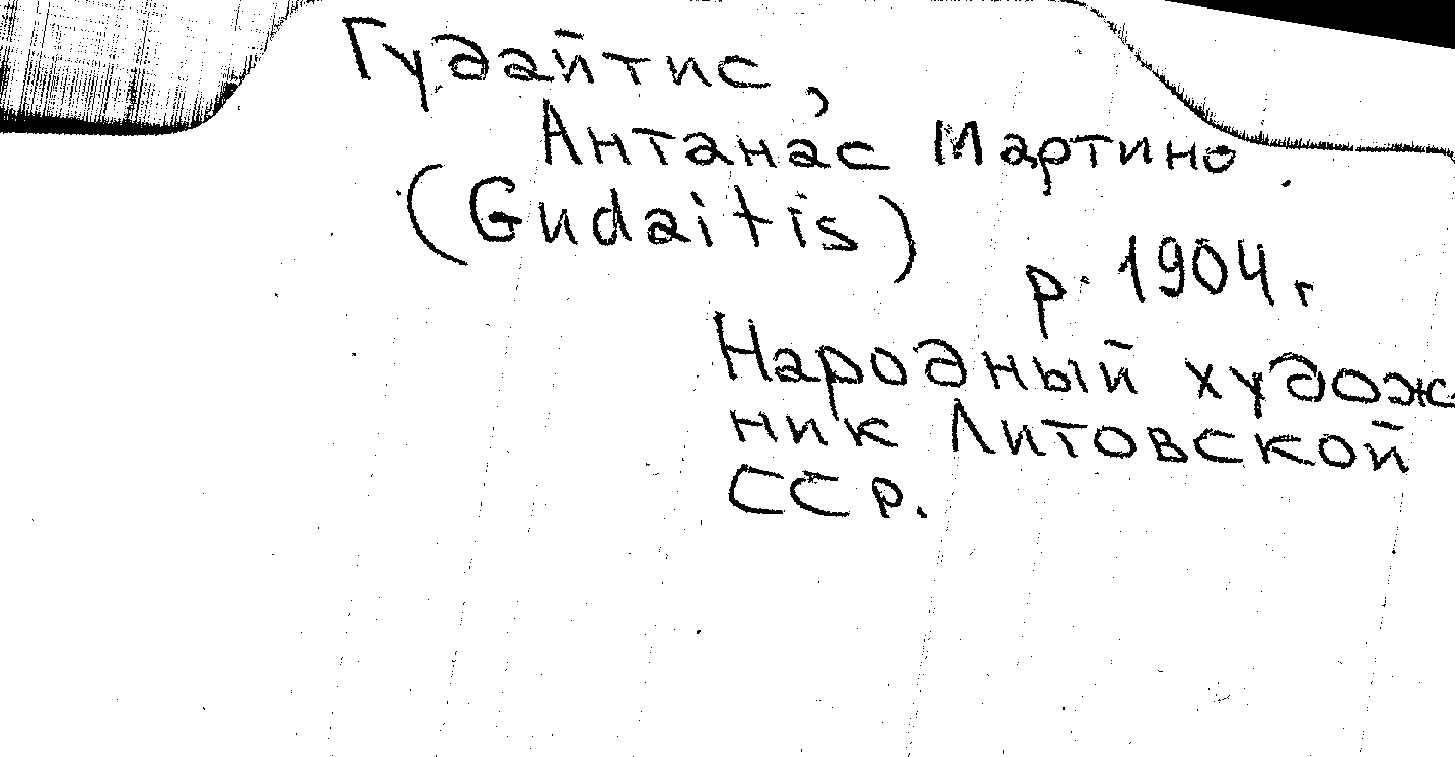 Гудайтис,
Антанас Мартино
(Gudaitis)
р. 1904 г
Народный худож-
ник Литовской
ССР.